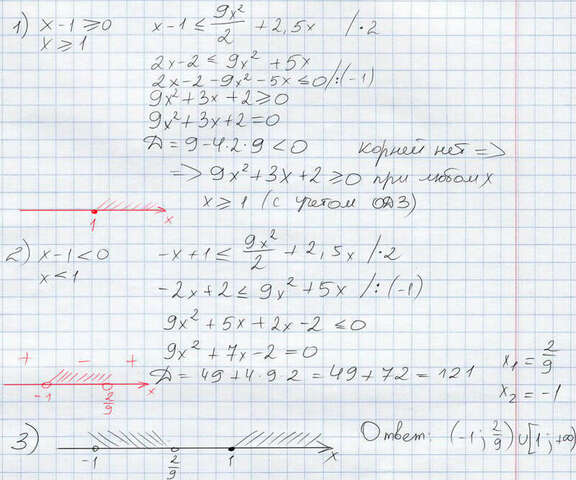 1) x-1≥0   x-1 ≤ 9x²/2 + 2,5x /·2
x≥1
2x-2 ≤ 9x² + 5x
2x-2-9x²-5x ≤0 /:(-1)
9x²+3x+2≥0
9x²+3x+2=0
Д=9-4·2·9<0   корней нет =>
=> 9x²+3x+2≥0 при любом x
x≥1 (с учетом ОДЗ)
1   x
2) x-1<0   -x+1 ≤ 9x²/2 + 2,5x /·2
x<1
-2x+2 ≤ 9x²+5x /:(-1)
9x²+5x+2x-2 ≤0
9x²+7x-2=0   x₁ = 2/9
+ - +
Д=49+4·9·2=49+72=121   x₂ = -1
-1   2/9   x
3)   Ответ: (-1; 2/9) ∪ [1; +∞)
-1   2/9   1   x